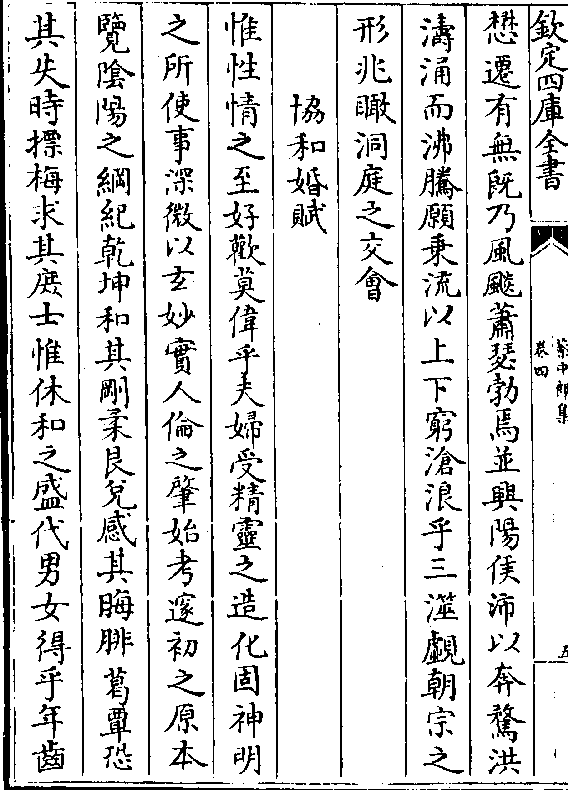 欽定四庫全書
蔡中郎集
卷四
五
懋遷有無既乃風飈蕭瑟勃焉並興陽侯沛以奔騖洪
濤涌而沸騰願乗流以上下窮滄浪乎三澨覷朝宗之
形兆瞰洞庭之交會
協和婚賦
惟性情之至好歡莫偉乎夫婦受精靈之造化固神明
之所使事深微以玄妙實人倫之肇始考邃初之原本
覽隂陽之綱紀乾坤和其剛柔艮兌感其脢腓葛覃恐
其失時摽梅求其庻士惟休和之盛代男女得乎年齒